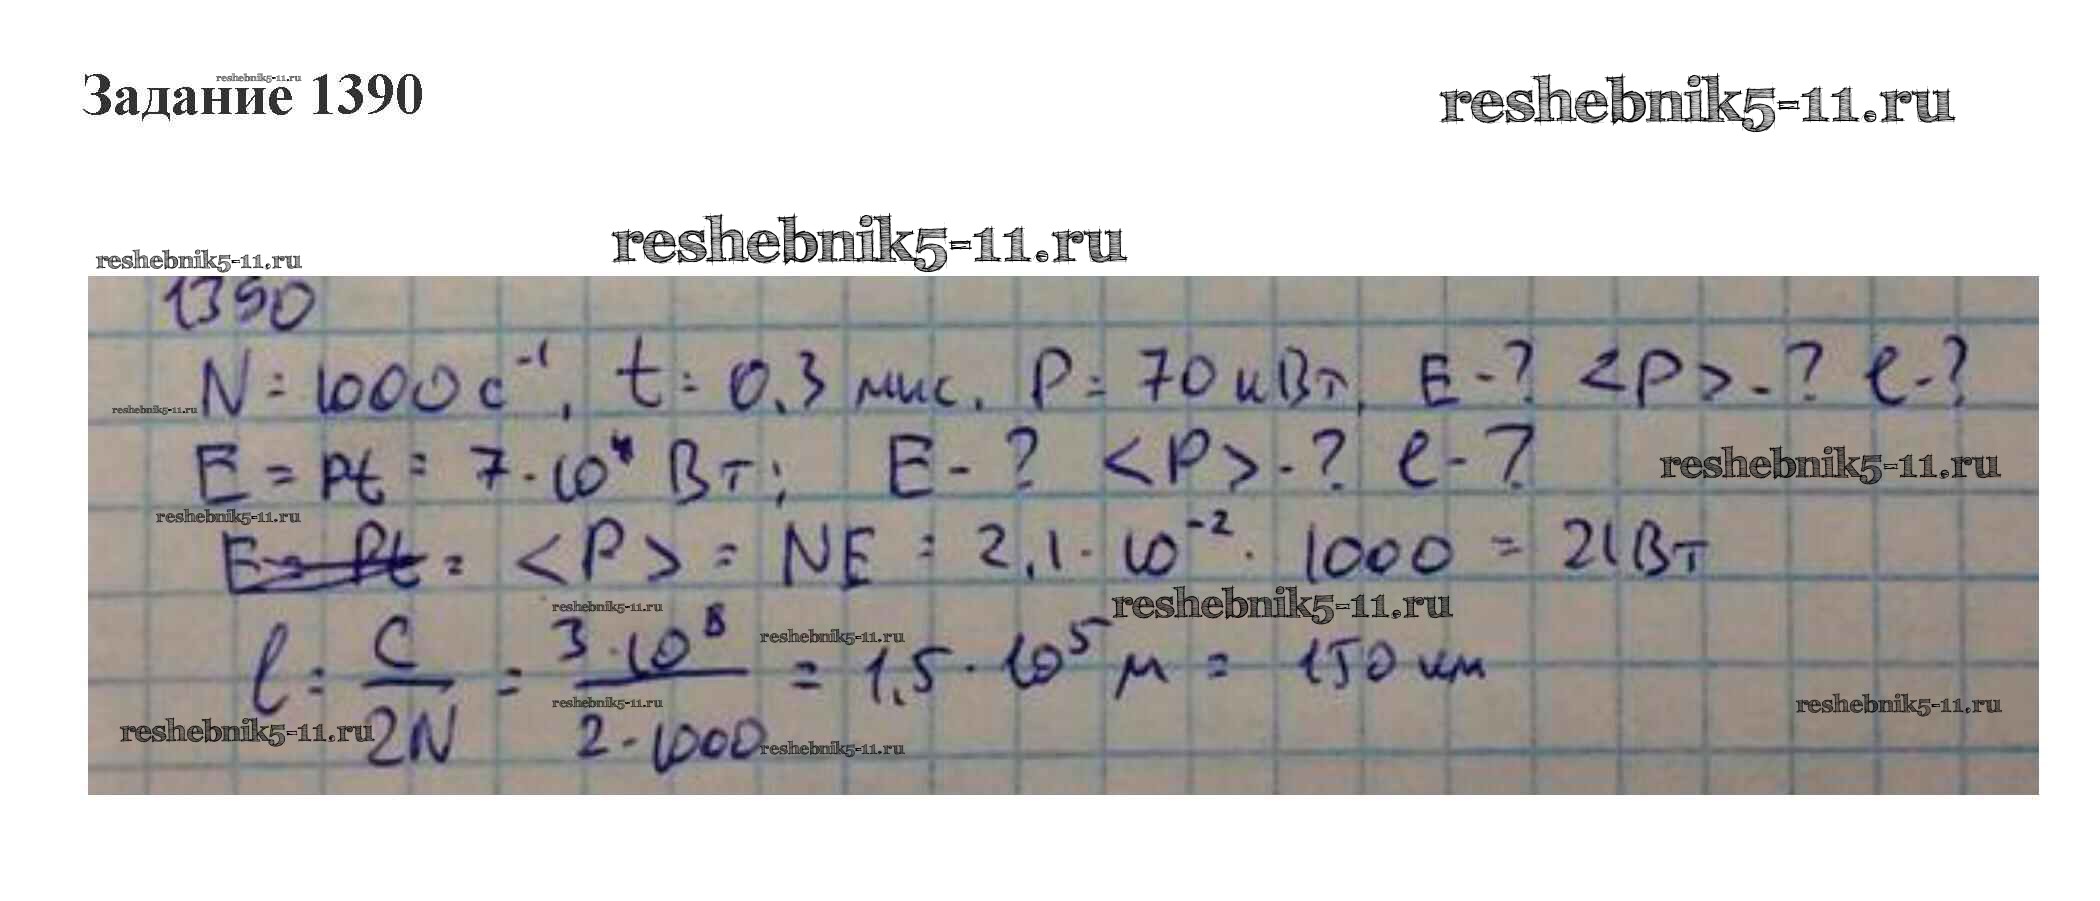 Задание 1390
reshebnik5-11.ru
reshebnik5-11.ru
reshebnik5-11.ru
reshebnik5-11.ru
1390
N = 1000 с⁻¹, t = 0,3 мкс, P = 70 кВт, E - ? <P> - ? l - ?
reshebnik5-11.ru
E = Pt = 7 · 10⁴ Вт; E - ? <P> - ? l - ?
reshebnik5-11.ru
reshebnik5-11.ru
E = Pt = <P> = NE = 2,1 · 10⁻² · 1000 = 21 Вт
reshebnik5-11.ru
reshebnik5-11.ru
reshebnik5-11.ru
l = C/2N = 3·10⁸/2·1000 = 1,5 · 10⁵ м = 150 км
reshebnik5-11.ru
reshebnik5-11.ru
reshebnik5-11.ru
reshebnik5-11.ru